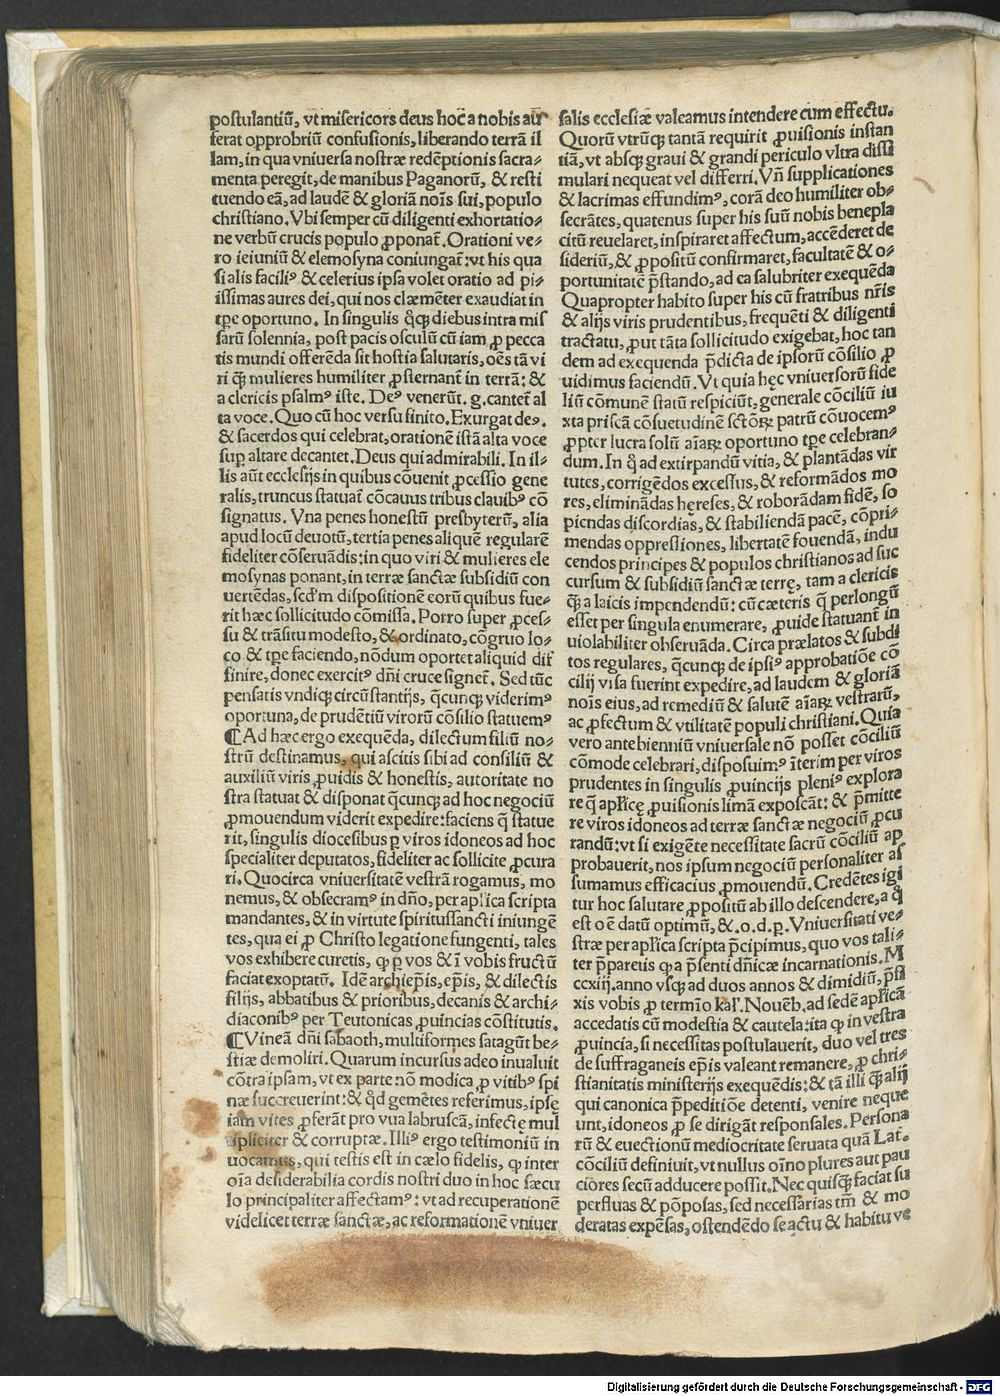 postulantiū, vt misericors deus hoc a nobis au
ferat opprobriū confusionis, liberando terrā il
lam, in qua vniuersa nostræ redēptionis sacra⸗
menta peregit, de manibus Paganorū, & resti
tuendo eā, ad laudē & gloriā nois̄ sui, populo
christiano. Vbi semper cū diligenti exhortatio⸗
ne verbū crucis populo ꝓponat̄. Orationi ve⸗
ro ieiuniū & elemosyna coniungat̄: vt his qua
si alis faciliꝰ & celerius ipsa volet oratio ad pi⸗
issimas aures dei, qui nos clæmēter exaudiat in
tp̄e oportuno. In singulis q̄q̄ diebus intra mis
sarū solennia, post pacis osculū cū iam ꝓ pecca
tis mundi offerēda sit hostia salutaris, oēs tā vi
ri q̄ꝫ mulieres humiliter ꝓsternant̄ in terrā: &
a clericis psalmꝰ iste. Deꝰ venerūt. g. cantet̄ al
ta voce. Quo cū hoc versu finito. Exurgat deꝰ.
& sacerdos qui celebrat, orationē istā alta voce
suꝑ altare decantet. Deus qui admirabili. In il⸗
lis aūt ecclesijs in quibus cōuenit ꝓcessio gene
ralis, truncus statuat̄ cōcauus tribus clauibꝰ cō
signatus. Vna penes honestū presbyterū, alia
apud locū deuotū, tertia penes aliquē regularē
fideliter cōseruādis: in quo viri & mulieres ele
mosynas ponant, in terræ sanctæ subsidiū con
uertēdas, scd'm dispositionē eorū quibus fue⸗
rit hæc sollicitudo cōmissa. Porro super ꝓces⸗
su & trāsitu modesto, & ordinato, cōgruo lo⸗
co & tp̄e faciendo, nōdum oportet aliquid dif
finire, donec exercitꝰ dn̄i cruce signet̄. Sed tūc
pensatis vndiqꝫ circūstantijs, q̄cunqꝫ viderimꝰ
oportuna, de prudētiū virorū cōsilio statuemꝰ
¶ Ad hæc ergo exequēda, dilectum filiū no⸗
strū destinamus, qui ascitis sibi ad consiliū &
auxiliū viris ꝓuidis & honestis, autoritate no
stra statuat & disponat q̄cunqꝫ ad hoc negociū
ꝓmouendum viderit expedire: faciens q̄ statue
rit, singulis diocesibus ꝑ viros idoneos ad hoc
specialiter deputatos, fideliter ac sollicite ꝓcura
ri. Quocirca vniuersitatē vestrā rogamus, mo
nemus, & obsecramꝰ in dn̄o, per apl̄ica scripta
mandantes, & in virtute spiritussancti iniungē
tes, qua ei ꝓ Christo legatione fungenti, tales
vos exhibere curetis, qꝫ ꝑ vos & ī vobis fructū
faciat exoptatū. Idē archiep̄is, ep̄is, & dilectis
filijs, abbatibus & prioribus, decanis & archi⸗
diaconibꝰ per Teutonicas ꝓuincias cōstitutis.
¶ Vineā dn̄i sabaoth, multiformes satagūt be⸗
stiæ demoliri. Quarum incursus adeo inualuit
cōtra ipsam, vt ex parte nō modica ꝓ vitibꝰ spi
næ succreuerint: & qd̄ gemētes referimus, ipsę
iam vites ꝓferāt pro vua labruscā, infectę mul
tipliciter & corruptæ. Illiꝰ ergo testimoniū in
uocamus, qui testis est in cælo fidelis, qꝫ inter
oīa desiderabilia cordis nostri duo in hoc sæcu
lo principaliter affectamꝰ: vt ad recuperationē
videlicet terræ sanctæ, ac reformationē vniuer
salis ecclesiæ valeamus intendere cum effectu.
Quorū vtrūqꝫ tantā requirit ꝓuisionis instan
tiā, vt absqꝫ graui & grandi periculo vltra dissi
mulari nequeat vel differri. Vn̄ supplicationes
& lacrimas effundimꝰ, corā deo humiliter ob⸗
secrātes, quatenus super his suū nobis benepla
citū reuelaret, inspiraret affectum, accēderet de
sideriū, & ꝓpositū confirmaret, facultatē & o⸗
portunitatē p̄stando, ad ea salubriter exequēda
Quapropter habito super his cū fratribus nr̄is
& alijs viris prudentibus, frequēti & diligenti
tractatu, ꝓut tāta sollicitudo exigebat, hoc tan
dem ad exequenda p̄dicta de ipsorū cōsilio ꝓ
uidimus faciendū. Vt quia hęc vniuersorū fide
liū cōmunē statū respiciūt, generale cōciliū iu
xta priscā cōsuetudinē sctōꝝ patrū cōuocemꝰ
ꝓpter lucra solū aīaꝝ oportuno tp̄e celebran⸗
dum. In q̄ ad extirpandū vitia, & plantādas vir
tutes, corrigēdos excessus, & reformādos mo
res, eliminādas hęreses, & roborādam fidē, so
piendas discordias, & stabiliendā pacē, cōpri⸗
mendas oppressiones, libertatē fouendā, indu
cendos principes & populos christianos ad suc
cursum & subsidiū sanctæ terrę, tam a clericis
q̄ꝫ a laicis impendendū: cū cæteris q̄ perlongū
esset per singula enumerare, ꝓuide statuant̄ in
uiolabiliter obseruāda. Circa prælatos & subdi
tos regulares, q̄cunqꝫ de ipsiꝰ approbatiōe cō
cilij visa fuerint expedire, ad laudem & gloriā
nois̄ eius, ad remediū & salutē aīaꝝ vestrarū,
ac ꝓfectum & vtilitatē populi christiani. Quia
vero ante bienniū vniuersale nō posset cōciliū
cōmode celebrari, disposuimꝰ īterim per viros
prudentes in singulis ꝓuincijs pleniꝰ explora
re q̄ apl̄icę ꝓuisionis limā exposcāt: & p̄mitte
re viros idoneos ad terræ sanctæ negociū ꝓcu
randū: vt si exigēte necessitate sacrū cōciliū ap
probauerit, nos ipsum negociū personaliter as
sumamus efficacius ꝓmouendū. Credētes igi
tur hoc salutare ꝓpositū ab illo descendere, a q̄
est oē datū optimū, &. o. d. ꝑ. Vniuersitati ve⸗
stræ per apl̄ica scripta p̄cipimus, quo vos tali⸗
ter p̄paretis qꝫ a p̄senti dn̄icæ incarnationis. M
ccxiij. anno vsqꝫ ad duos annos & dimidiū, p̄fi
xis vobis ꝓ termīo kal'. Nouēb. ad sedē apl̄icā
accedatis cū modestia & cautela: ita qꝫ in vestra
ꝓuincia, si necessitas postulauerit, duo vel tres
de suffraganeis ep̄is valeant remanere, ꝓ chri⸗
stianitatis ministerijs exequēdis: & tā illi q̄ꝫ alij
qui canonica p̄peditiōe detenti, venire neque
unt, idoneos ꝓ se dirigāt responsales. Persona
rū & euectionū mediocritate seruata quā Lat.
cōciliū definiuit, vt nullus oīno plures aut pau
ciores secū adducere possit. Nec quisq̄ꝫ faciat su
perfluas & pōposas, sed necessarias tm̄ & mo
deratas expēsas, ostendēdo se actu & habitu ve
Digitalisierung gefördert durch die Deutsche Forschungsgemeinschaft - DFG